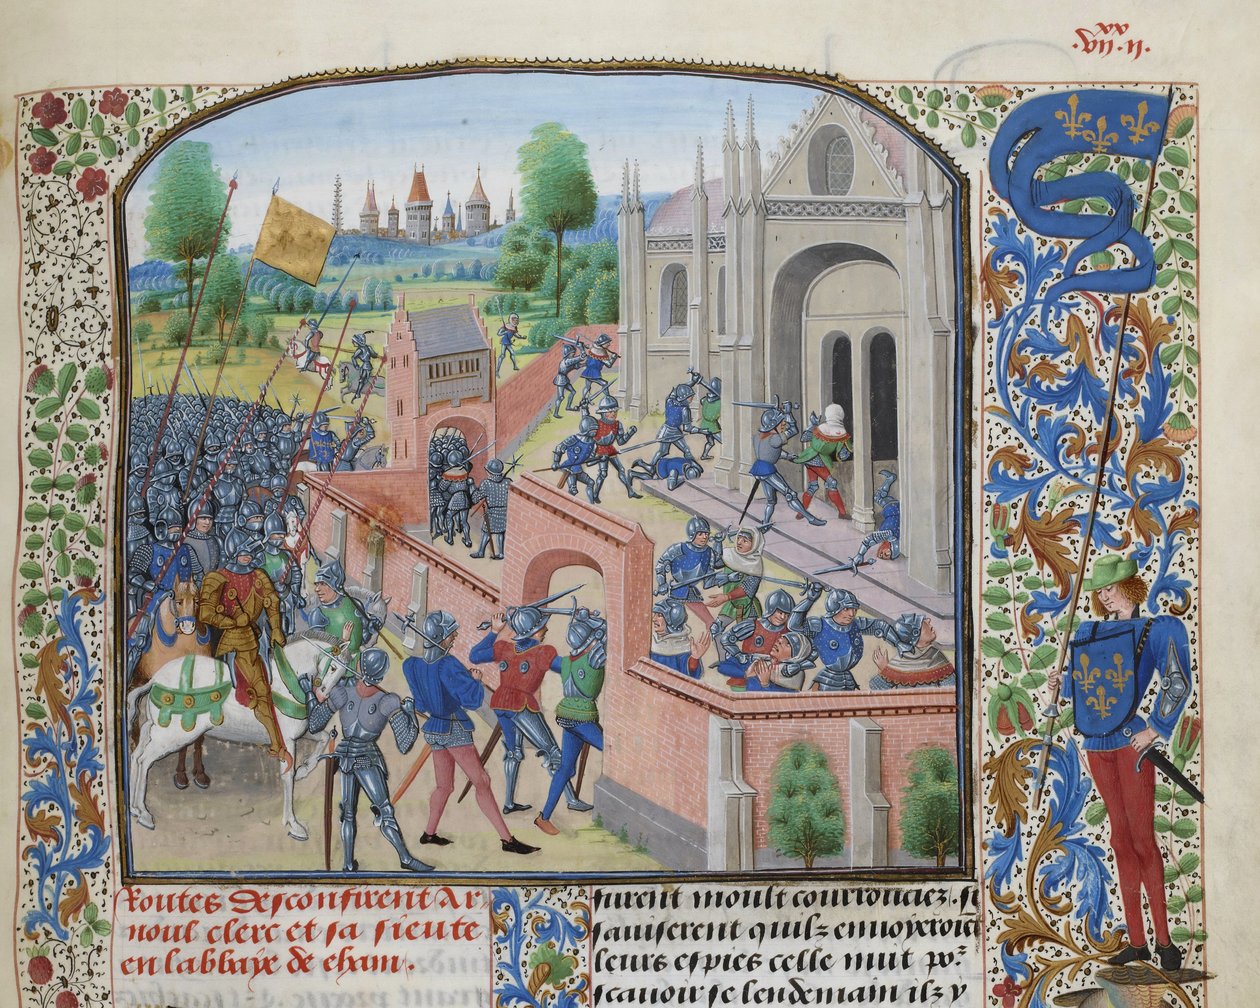 xx
.vii.ii.
Routes desconfirent Ar
noul clerc et sa sieute
en labbaye de eham.
furent moult courrouciez. si
sauiserent quilz enuoyeroiẽt
leurs espies celle nuit poᷣ
scauoir se lendemain ilz y